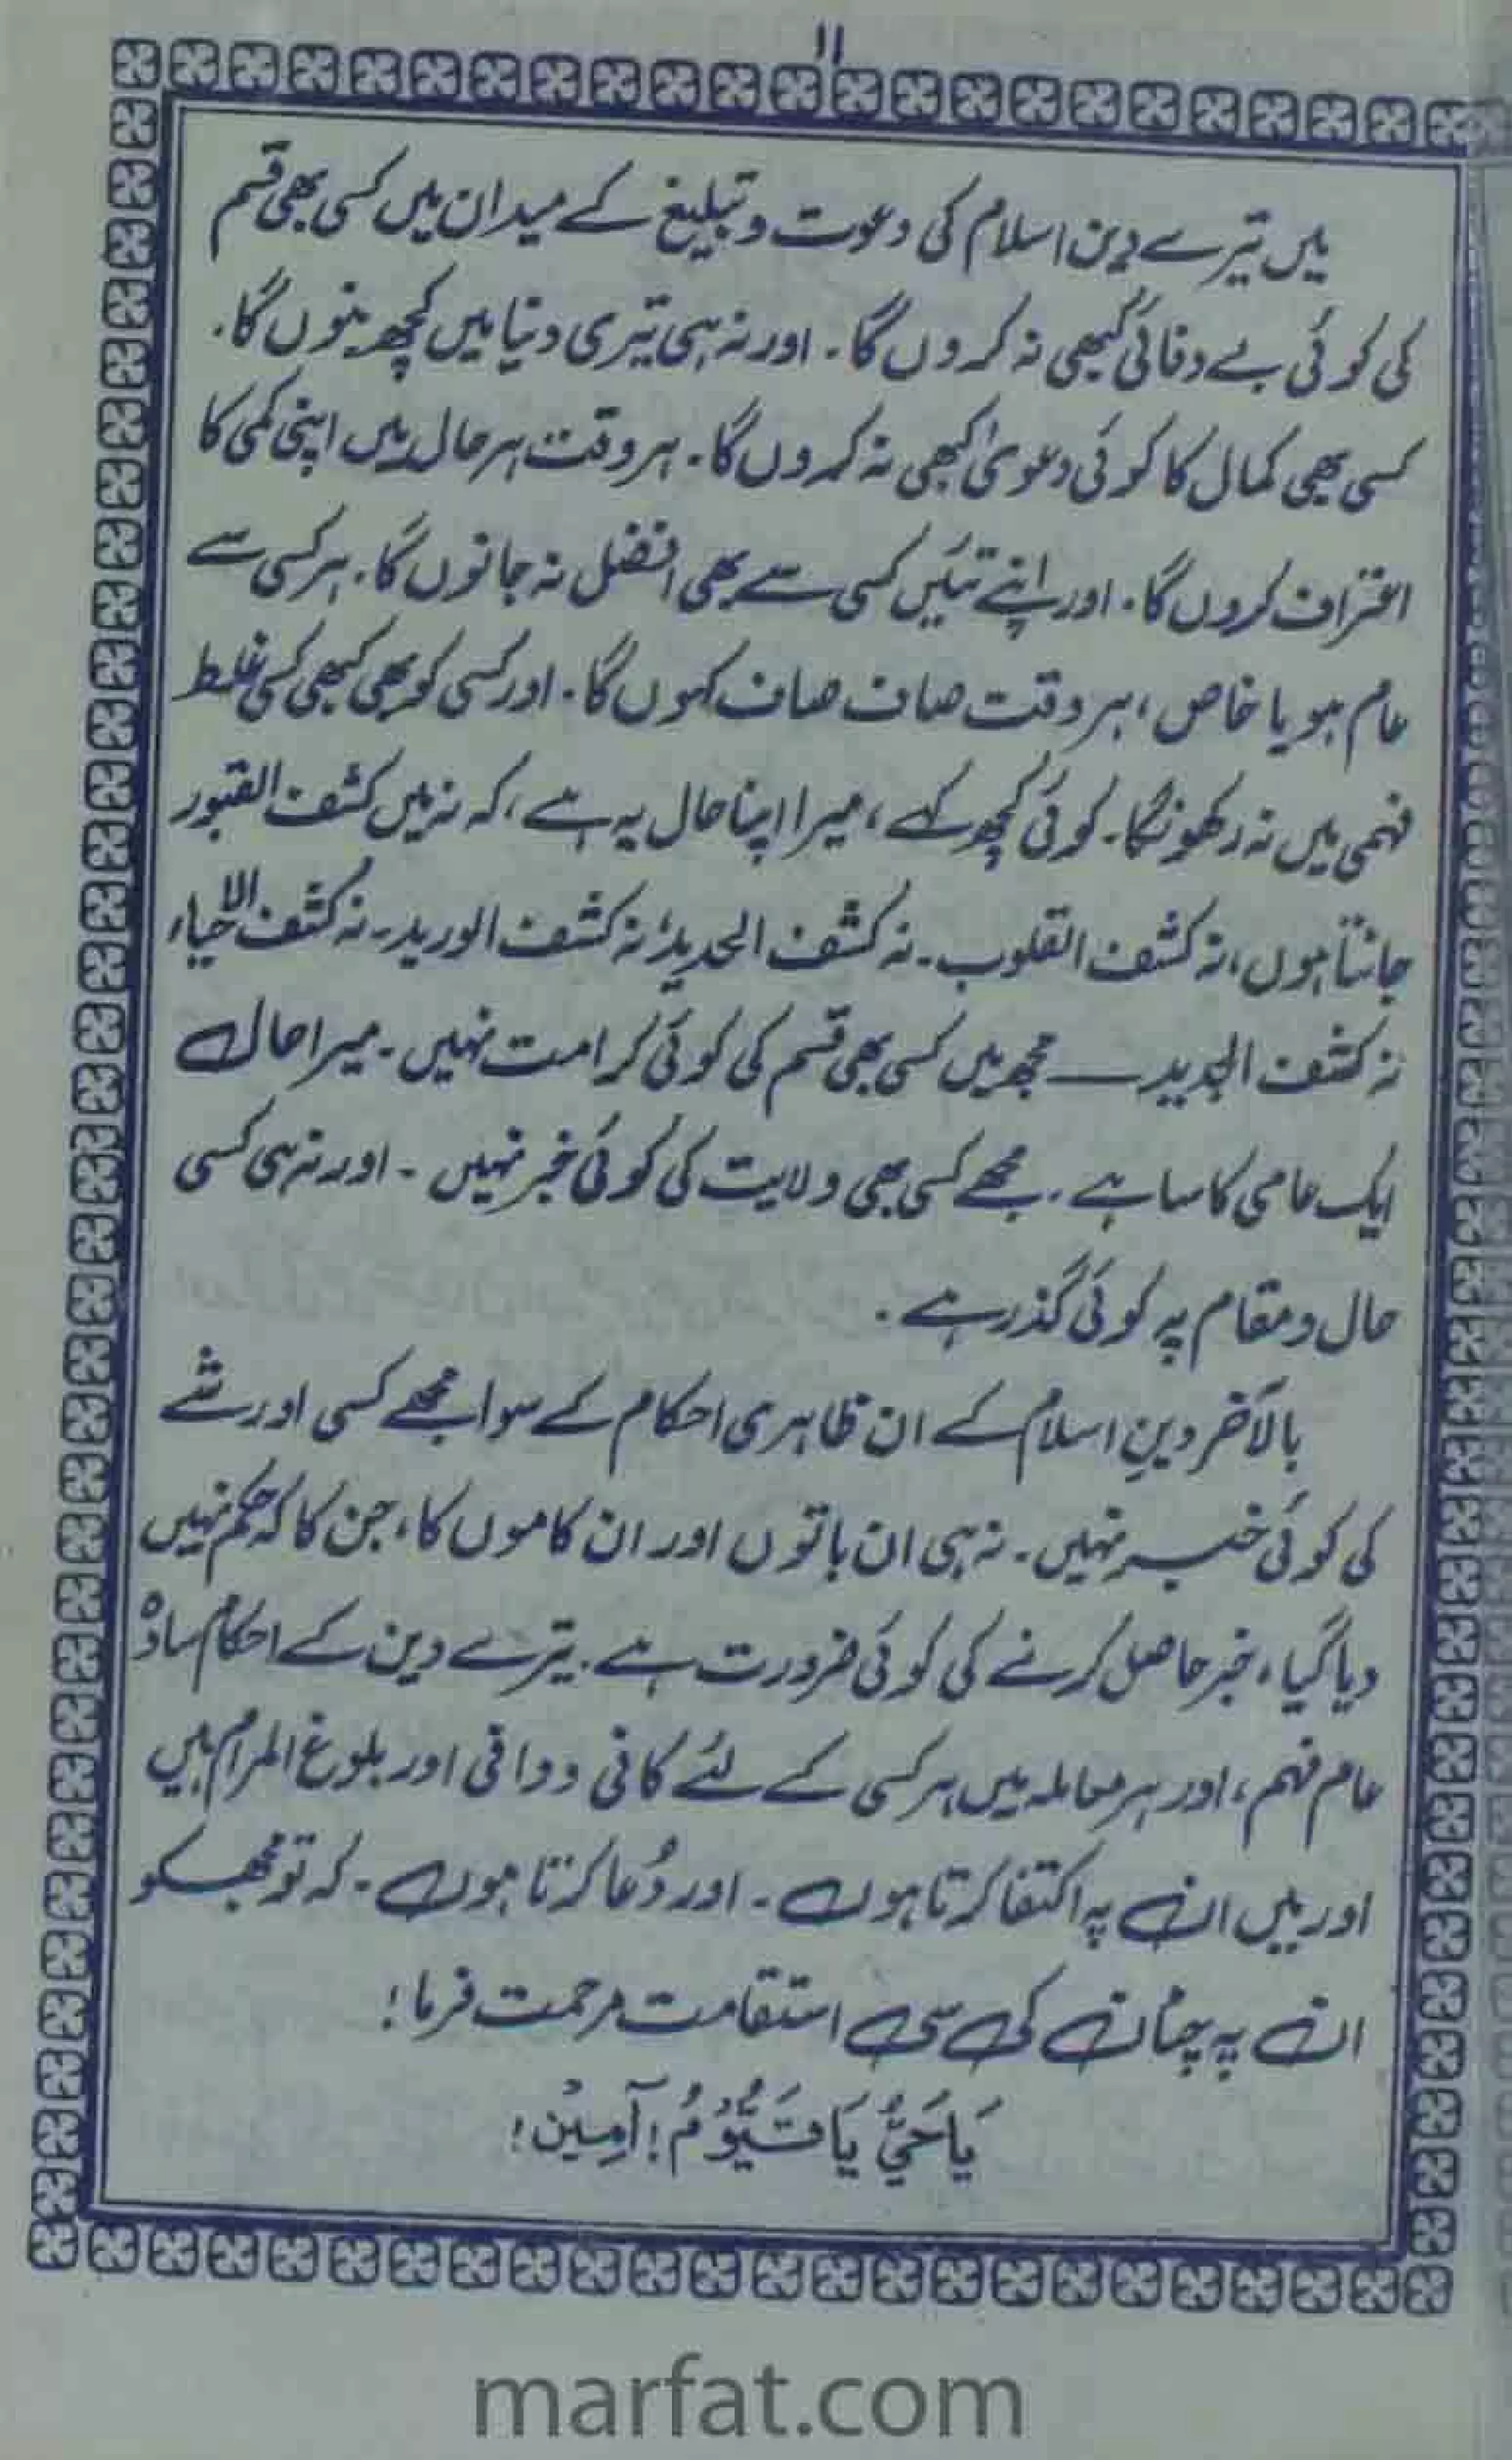 ۱۱
میں تیرے دین اسلام کی دعوت و تبلیغ کے میدان میں کسی بھی قسم
کی کوئی بے وفائی کبھی نہ کروں گا۔ اور نہ ہی تیری دنیا میں کچھ بنوں گا۔
کسی بھی کمال کا کوئی دعویٰ کبھی نہ کروں گا۔ ہر وقت ہر حال میں اپنی کمی کا
اعتراف کروں گا۔ اور اپنے تئیں کسی سے بھی افضل نہ جانوں گا۔ ہر کسی سے
عام ہو یا خاص، ہر وقت صاف صاف کہوں گا۔ اور کسی کو بھی کبھی کسی غلط
فہمی میں نہ رکھونگا۔ کوئی کچھ کہے، میرا اپنا حال یہ ہے، کہ نہ میں کشف القبور
جانتا ہوں، نہ کشف القلوب۔ نہ کشف الحدید، نہ کشف الورید۔ نہ کشف الاحیاء
نہ کشف الجدید ــــ مجھ میں کسی بھی قسم کی کوئی کرامت نہیں۔ میرا حال
ایک عامی کا سا ہے۔ مجھے کسی بھی ولایت کی کوئی خبر نہیں ۔ اور نہ ہی کسی
حال و مقام پہ کوئی گذر ہے ۔
بالآخر دینِ اسلام کے ان ظاہری احکام کے سوا مجھے کسی اور شے
کی کوئی خبر نہیں۔ نہ ہی ان باتوں اور ان کاموں کا، جن کا کہ حکم نہیں
دیا گیا، خبر حاصل کرنے کی کوئی ضرورت ہے۔ تیرے دین کے احکام سادہ
عام فہم، اور ہر معاملہ میں ہر کسی کے لئے کافی و وافی اور بلوغ المرام ہیں
اور میں ان پہ اکتفا کرتا ہوں ۔ اور دُعا کرتا ہوں ۔ کہ تو مجھکو
ان پہ چٹان کی سی استقامت مرحمت فرما!
یَا حَیُّ یَا قَیُّوْمُ! آمِیْن!
marfat.com